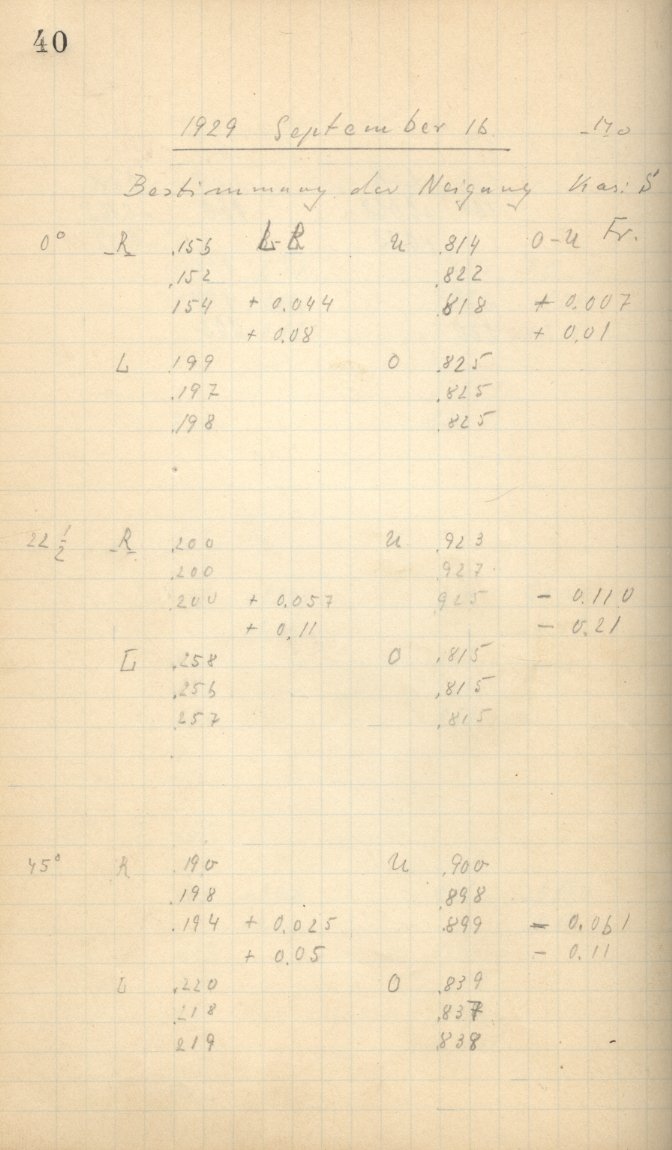 40
1929 September 16 -170
Bestimmung der Neigung Kas: S
0° R .156 L-R U .814 O-U Fr.
.152 .822
154 + 0.044 .818 + 0.007
+ 0.08 + 0.01
L .199 O .825
.197 .825
.198 .825
22 1/2 R .200 U .923
.200 927
.200 + 0.057 925 - 0.110
+ 0.11 - 0.21
L .258 O .815
.256 .815
.257 .815
45° R .190 U .900
.198 .898
.194 + 0.025 .899 - 0.061
+ 0.05 - 0.11
L .220 O .839
.218 .837
219 838